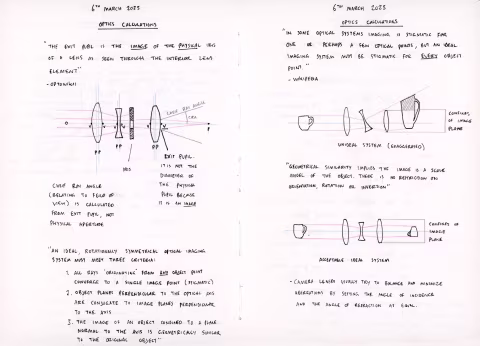 6TH MARCH 2023
OPTICS CALCULATIONS
"THE EXIT PUPIL IS THE IMAGE OF THE PHYSICAL IRIS
OF A LENS AS SEEN THROUGH THE INTERIOR LENS
ELEMENT"
CHIEF RAY ANGLE
O
PP
PP
PP
IRIS
EXIT PUPIL.
IT IS NOT THE
DIAMETER OF
THE PHYSICAL
PUPIL BECAUSE
IT IS AN IMAGE
CHIEF RAY ANGLE
(RELATING TO FIELD OF
VIEW) IS CALCULATED
FROM EXIT PUPIL, NOT
PHYSICAL APERTURE
"AN IDEAL, ROTATIONALLY SYMMETRICAL OPTICAL IMAGING
SYSTEM MUST MEET THREE CRITERIA:
1. ALL RAYS 'ORIGINATING' FROM ANY OBJECT POINT
CONVERGE TO A SINGLE IMAGE POINT (STIGMATIC)
2. OBJECT PLANES PERPENDICULAR TO THE OPTICAL AXIS
ARE CONJUGATE TO IMAGE PLANES PERPENDICULAR
TO THE AXIS
3. THE IMAGE OF AN OBJECT CONFINED TO A PLANE
NORMAL TO THE AXIS IS GEOMETRICALLY SIMILAR
TO THE ORIGINAL OBJECT"
6TH MARCH 2023
OPTICS CALCULATIONS
"IN SOME OPTICAL SYSTEMS IMAGING IS STIGMATIC FOR
ONE OR PERHAPS A FEW OPTICAL POINTS, BUT AN IDEAL
IMAGING SYSTEM MUST BE STIGMATIC FOR EVERY OBJECT
POINT."
- WIKIPEDIA
CONFINES
OF IMAGE
PLANE
UNIDEAL SYSTEM (EXAGGERATED)
"GEOMETRICAL SIMILARITY IMPLIES THE IMAGE IS A SCALE
MODEL OF THE OBJECT. THERE IS NO RESTRICTION ON
ORIENTATION, ROTATION OR INVERSION"
CONFINES OF
IMAGE
PLANE
ACCEPTABLE IDEAL SYSTEM
- CAMERA LENSES USUALLY TRY TO BALANCE AND MINIMIZE
ABERRATIONS BY SETTING THE ANGLE OF INCIDENCE
AND THE ANGLE OF REFRACTION AT EQUAL.